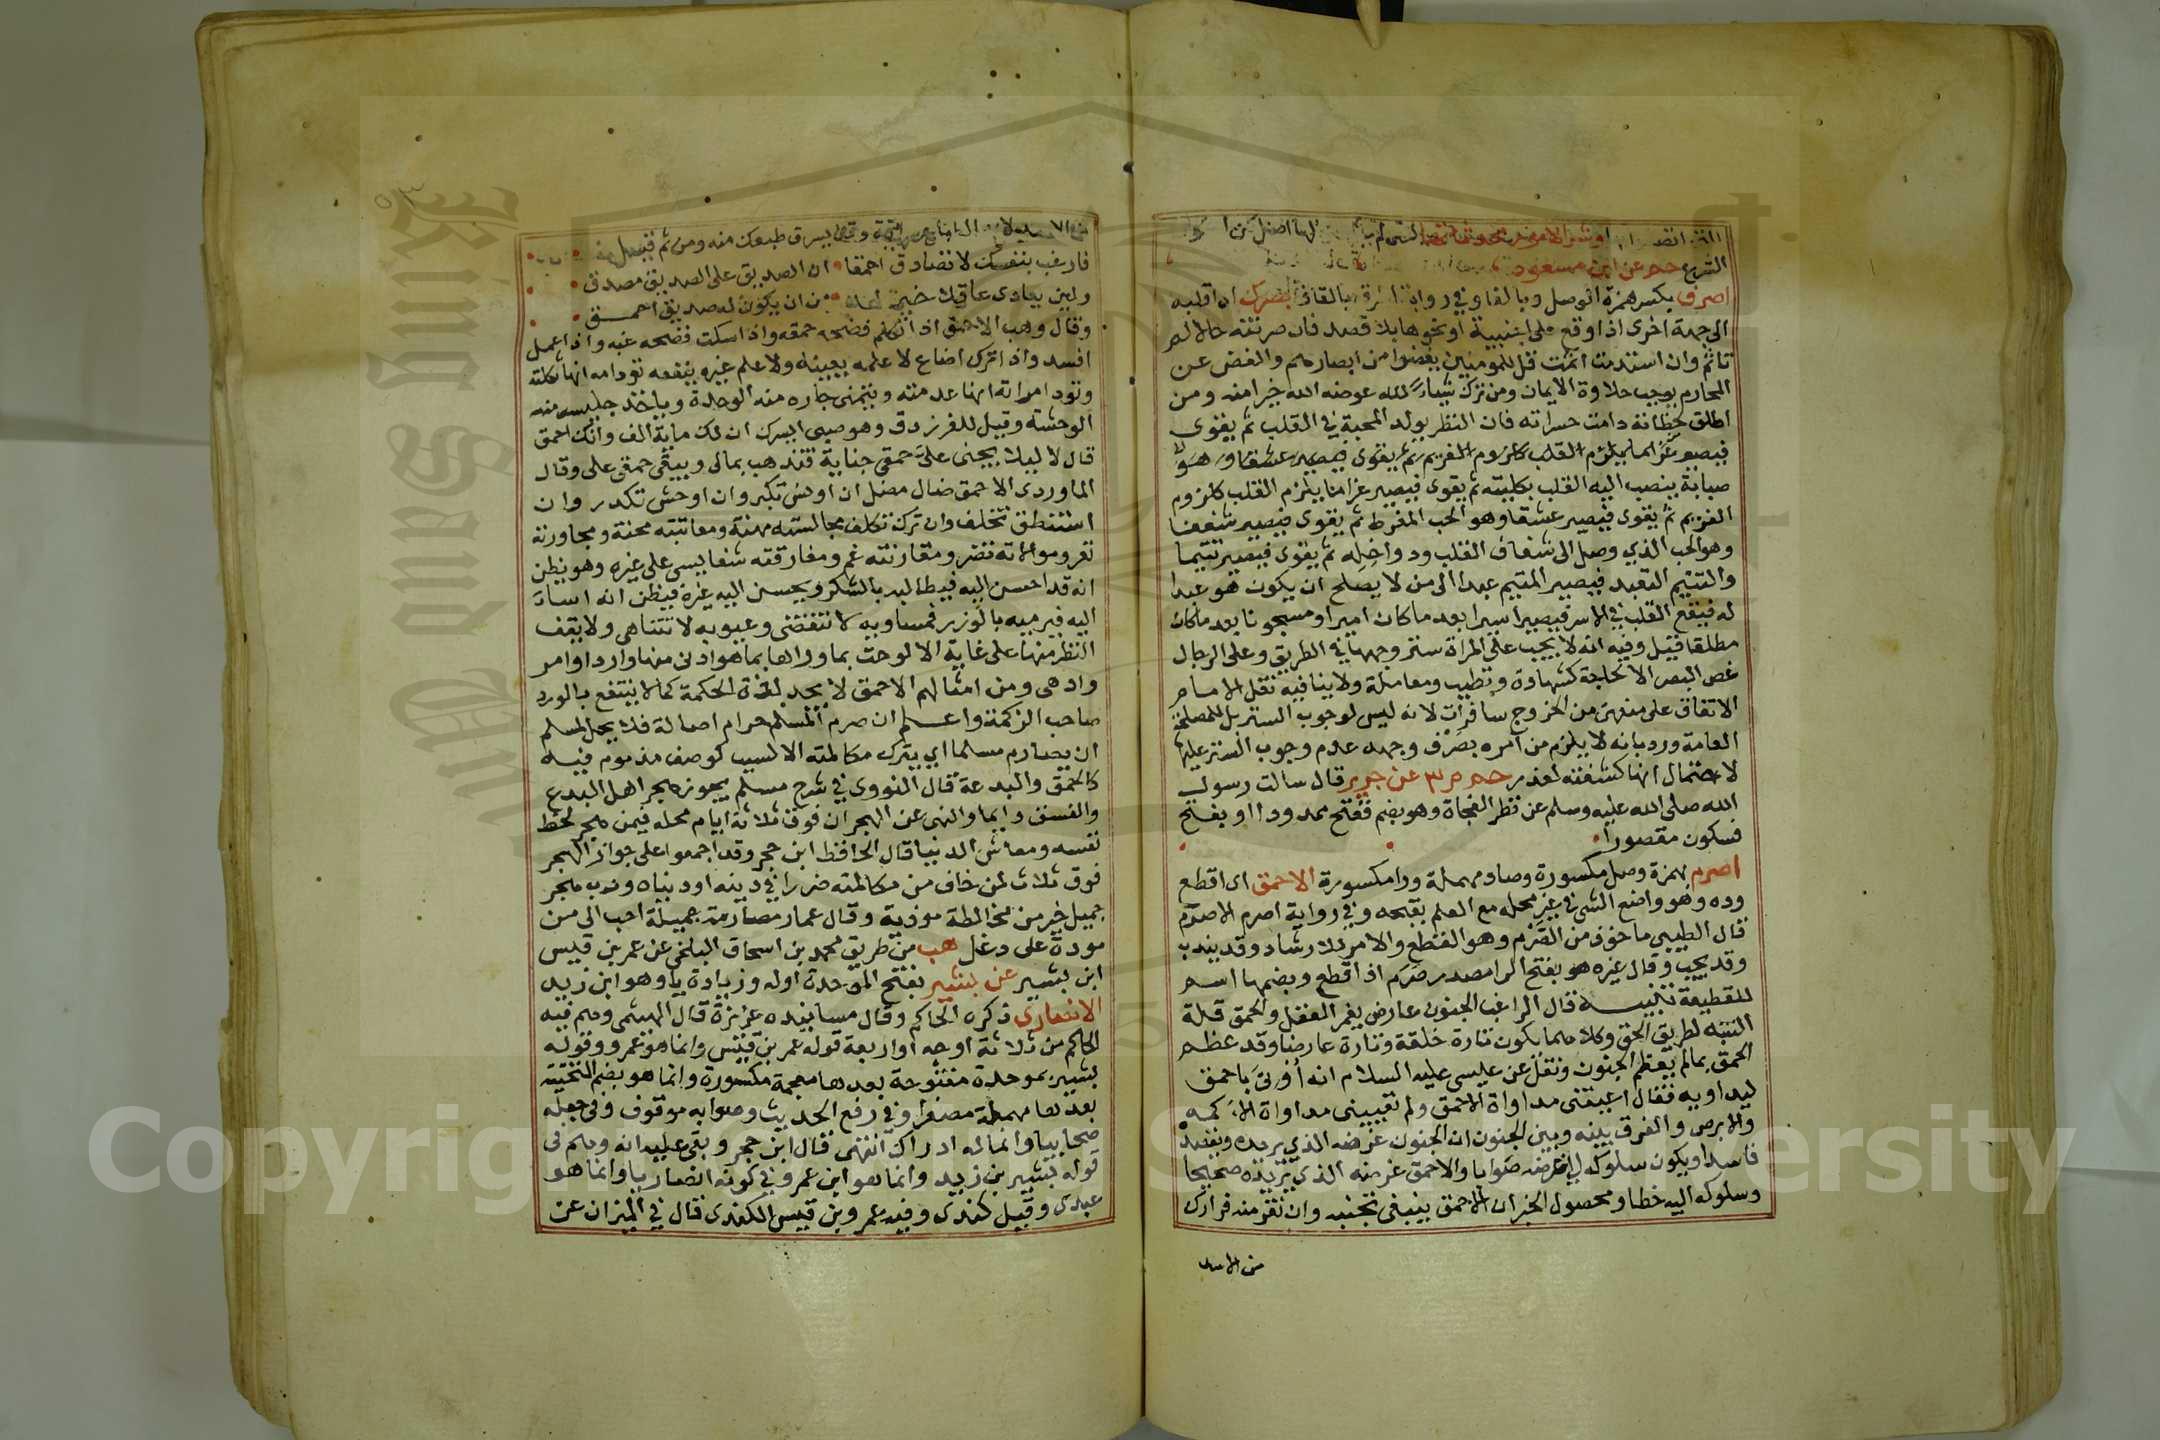 الشرع حم عن ابن مسعود
اصرف بكسر همزة الوصل وبالفاء وفي رواية بالقاف بصرك اي اقلبه
الي جهة اخري اذا وقع علي اجنبية او نحوها بلا قصد فان صرفته حالا لم
تاثم وان استدمت اثمت قل للمومنين يغضوا من ابصارهم والغض عن
المحارم يوجب حلاوة الايمان ومن ترك شيأ لله عوضه الله خيرا منه ومن
اطلق لحظاته دامت حسراته فان النظر يولد المحبة في القلب ثم يقوي
صبابة ينصب اليه القلب بكليته ثم يقوي فيصير غراما يلزم القلب كلزوم
الغريم ثم يقوي فيصير عشقا وهو الحب المفرط ثم يقوي فيصير شغفا
وهو الحب الذي وصل الى شغاف القلب ودواخله ثم يقوي فيصير تتيما
والتتيم التعبد فيصير المتيم عبدا الي من لا يصلح ان يكون هو عبدا
له فيقع القلب في الاسر فيصير اسيرا بعد ما كان اميرا ومسجونا بعد ما كان
مطلقا قيل وفيه انه لا يجب علي المراة ستر وجهها في الطريق وعلي الرجال
غض البصر الا لحاجة كشهادة وتطبيب ومعاملة ولا ينافيه نقل الامام
الاتفاق علي منعهن من الخروج سافرات لانه ليس لوجوب الستر بل للمصلحة
العامة ورد بانه لا يلزم من امره بصرف وجهه عدم وجوب الستر عليها
لاحتمال انها كشفته لعذر حم م ٣ عن جرير قال سالت رسول
الله صلي الله عليه وسلم عن نظر الفجاة وهو بضم ففتح ممدودا او بفتح
فسكون مقصورا
اصرم بهمزة وصل مكسورة وصاد مهملة ورا مكسورة الاحمق اي اقطع
وده وهو واضع الشي في غير محله مع العلم بقبحه وفي رواية اصرم الاصرم
قال الطيبي ماخوذ من الصرم وهو القطع والامر للارشاد وقد يندب
وقد يجب وقال غيره هو بفتح الرا مصدر صرم اذا قطع وبضمها اسم
للقطيعة تنبيه قال الراغب الجنون عارض يغمر العقل والحمق قلة
التنبه لطريق الحق وكلاهما يكون تارة خلقة وتارة عارضا وقد عظم
الحمق بمالم يعظم الجنون ونقل عن عيسي عليه السلام انه اُوتيَ باحمق
ليداويه فقال اعيتني مداواة الاحمق ولم تعييني مداواة الاكمه
والابرص والفرق بينه وبين الجنون ان الجنون غرضه الذي يريده ويقصده
فاسدا ويكون سلوكه الي غرضه صوابا والاحمق غرضه الذي يريده صحيحا
وسلوكه اليه خطا ومحصول الخبر ان الاحمق ينبغي تجنبه وان تفر منه فرارك
من الاسد
فارغب بنفسك لا تصادق احمقا ان الصديق علي الصديق مصدق
ولين يعادي عاقلا خير له من ان يكون له صديق احمق
وقال وهب الاحمق اذا تكلم فضحه حمقه واذا سكت فضحه عيه واذا عمل
افسد واذا ترك اضاع لا علمه يعينه ولا علم غيره ينفعه تود امه انها ثكلته
وتود امراته انها عدمته ويتمني جاره منه الوحدة وياخذ جليسه منه
الوحشة وقيل للفرزدق وهو صبي ايسرك ان لك ماية الف وانك احمق
قال لا ليلا يجني عليَّ حمقي جناية فتذهب بمالي ويبقي حمقي علي وقال
الماوردي الاحمق ضال مضل ان اونس تكبر وان اوحش تكدر وان
استنطق تخلف وان ترك تكلف مجالسته مهنة ومعاتبته محنة ومجاورته
تعر وموالاته تضر ومقارنته غم ومفارقته شفا يسي علي غيره وهو يظن
انه قد احسن اليه فيطالبه بالشكر ويحسن اليه غيره فيظن انه اساء
اليه فيرميه بالوزر فمساويه لا تنقضي وعيوبه لا تتناهي ولا يقف
النظر منها علي غاية الا لوحت بما وراها بما هو ادني منها واردا وامر
وادهي ومن امثالهم الاحمق لا يجد لذة الحكمة كما لا ينتفع بالورد
صاحب الزكمة واعلم ان صرم المسلم حرام اصالة فلا يحل لمسلم
ان يصارم مسلما اي يترك مكالمته الا لسبب كوصف مذموم فيه
كالحمق والبدعة قال النووي في شرح مسلم يجوز هجر اهل البدع
والفسق دايما والنهي عن الهجران فوق ثلاثة ايام محله فيمن هجر لحظ
نفسه ومعاش الدنيا قال الحافظ ابن حجر وقد اجمعوا علي جواز الهجر
فوق ثلاث لمن خاف من مكالمته ضررا في دينه او دنياه ورب هجر
جميل خير من مخالطة موذية وقال عمار مصارمة جميلة احب الي من
مودة علي دغل هب من طريق محمد بن اسحاق البلخي عن عمر بن قيس
ابن بشير عن بشير بفتح الموحدة اوله وزيادة يا وهو ابن زيد
الانصاري ذكره الحاكم وقال مسانيده عزيزة قال البيهقي وهم فيه
الحاكم من ثلاثة اوجه او اربعة قوله عمر بن قيس وانما هو عمرو وقوله
بشير بموحدة مفتوحة بعدها معجمة مكسورة وانما هو بضم التحتية
بعدها مهملة مصغرا وفي رفع الحديث وصوابه موقوف وفي جعله
صحابيا وانما له ادراك انتهي قال ابن حجر وبقي عليه انه وهم في
قوله بشير بن زيد وانما هو ابن عمرو وفي كونه انصاريا وانما هو
عبدي وقيل كندي وفيه عمرو بن قيس الكندي قال في الميزان عن